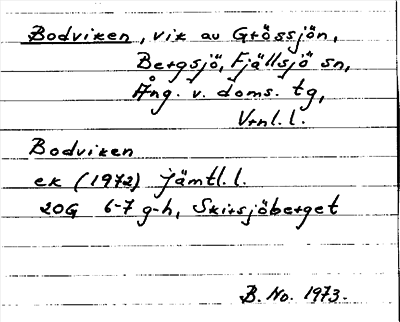 Bodviken, vik av Grössjön,
Bergsjö, Fjällsjö sn,
Ång. v. doms. tg,
Vrnl. l.
Bodviken
ek (1972) Jämtl. l.
20G 6-7 g-h, Skirsjöberget
B. No. 1973.